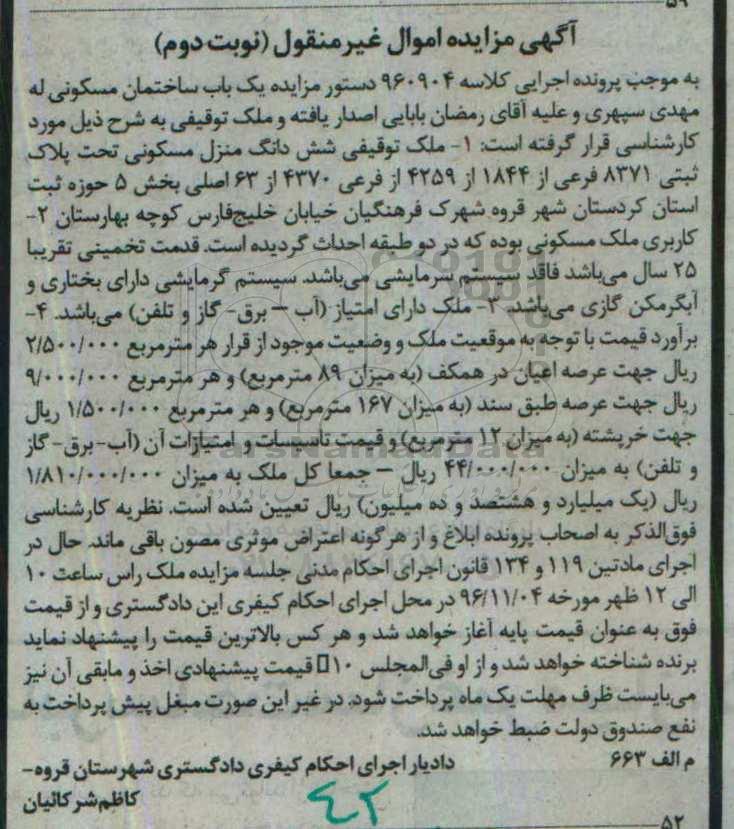 ۵۹
آگهی مزایده اموال غیرمنقول (نوبت دوم)
به موجب پرونده اجرایی کلاسه ۹۶۰۹۰۴ دستور مزایده یک باب ساختمان مسکونی له
مهدی سپهری و علیه آقای رمضان بابایی اصدار یافته و ملک توقیفی به شرح ذیل مورد
کارشناسی قرار گرفته است: ۱- ملک توقیفی شش دانگ منزل مسکونی تحت پلاک
ثبتی ۸۳۷۱ فرعی از ۱۸۴۴ از ۴۲۵۹ از فرعی ۴۳۷۰ از ۶۳ اصلی بخش ۵ حوزه ثبت
استان کردستان شهر قروه شهرک فرهنگیان خیابان خلیج‌فارس کوچه بهارستان ۲-
کاربری ملک مسکونی بوده که در دو طبقه احداث گردیده است. قدمت تخمینی تقریبا
۲۵ سال می‌باشد فاقد سیستم سرمایشی می‌باشد. سیستم گرمایشی دارای بختاری و
آبگرمکن گازی می‌باشد. ۳- ملک دارای امتیاز (آب – برق- گاز و تلفن) می‌باشد. ۴-
برآورد قیمت با توجه به موقعیت ملک و وضعیت موجود از قرار هر مترمربع ۲/۵۰۰/۰۰۰
ریال جهت عرصه اعیان در همکف (به میزان ۸۹ مترمربع) و هر مترمربع ۹/۰۰۰/۰۰۰
ریال جهت عرصه طبق سند (به میزان ۱۶۷ مترمربع) و هر مترمربع ۱/۵۰۰/۰۰۰ ریال
جهت خرپشته (به میزان ۱۲ مترمربع) و قیمت تاسیسات و امتیازات آن (آب-برق-گاز
و تلفن) به میزان ۴۴/۰۰۰/۰۰۰ ریال – جمعا کل ملک به میزان ۱/۸۱۰/۰۰۰/۰۰۰
ریال (یک میلیارد و هشتصد و ده میلیون) ریال تعیین شده است. نظریه کارشناسی
فوق‌الذکر به اصحاب پرونده ابلاغ و از هرگونه اعتراض موثری مصون باقی ماند. حال در
اجرای مادتین ۱۱۹ و ۱۳۴ قانون اجرای احکام مدنی جلسه مزایده ملک راس ساعت ۱۰
الی ۱۲ ظهر مورخه ۹۶/۱۱/۰۴ در محل اجرای احکام کیفری این دادگستری و از قیمت
فوق به عنوان قیمت پایه آغاز خواهد شد و هر کس بالاترین قیمت را پیشنهاد نماید
برنده شناخته خواهد شد و از او فی‌المجلس ۱۰□ قیمت پیشنهادی اخذ و مابقی آن نیز
می‌بایست ظرف مهلت یک ماه پرداخت شود. در غیر این صورت مبغل پیش پرداخت به
نفع صندوق دولت ضبط خواهد شد.
م الف ۶۶۳ دادیار اجرای احکام کیفری دادگستری شهرستان قروه-
کاظم شرکائیان
۴۲
۵۲
ParsNamadData